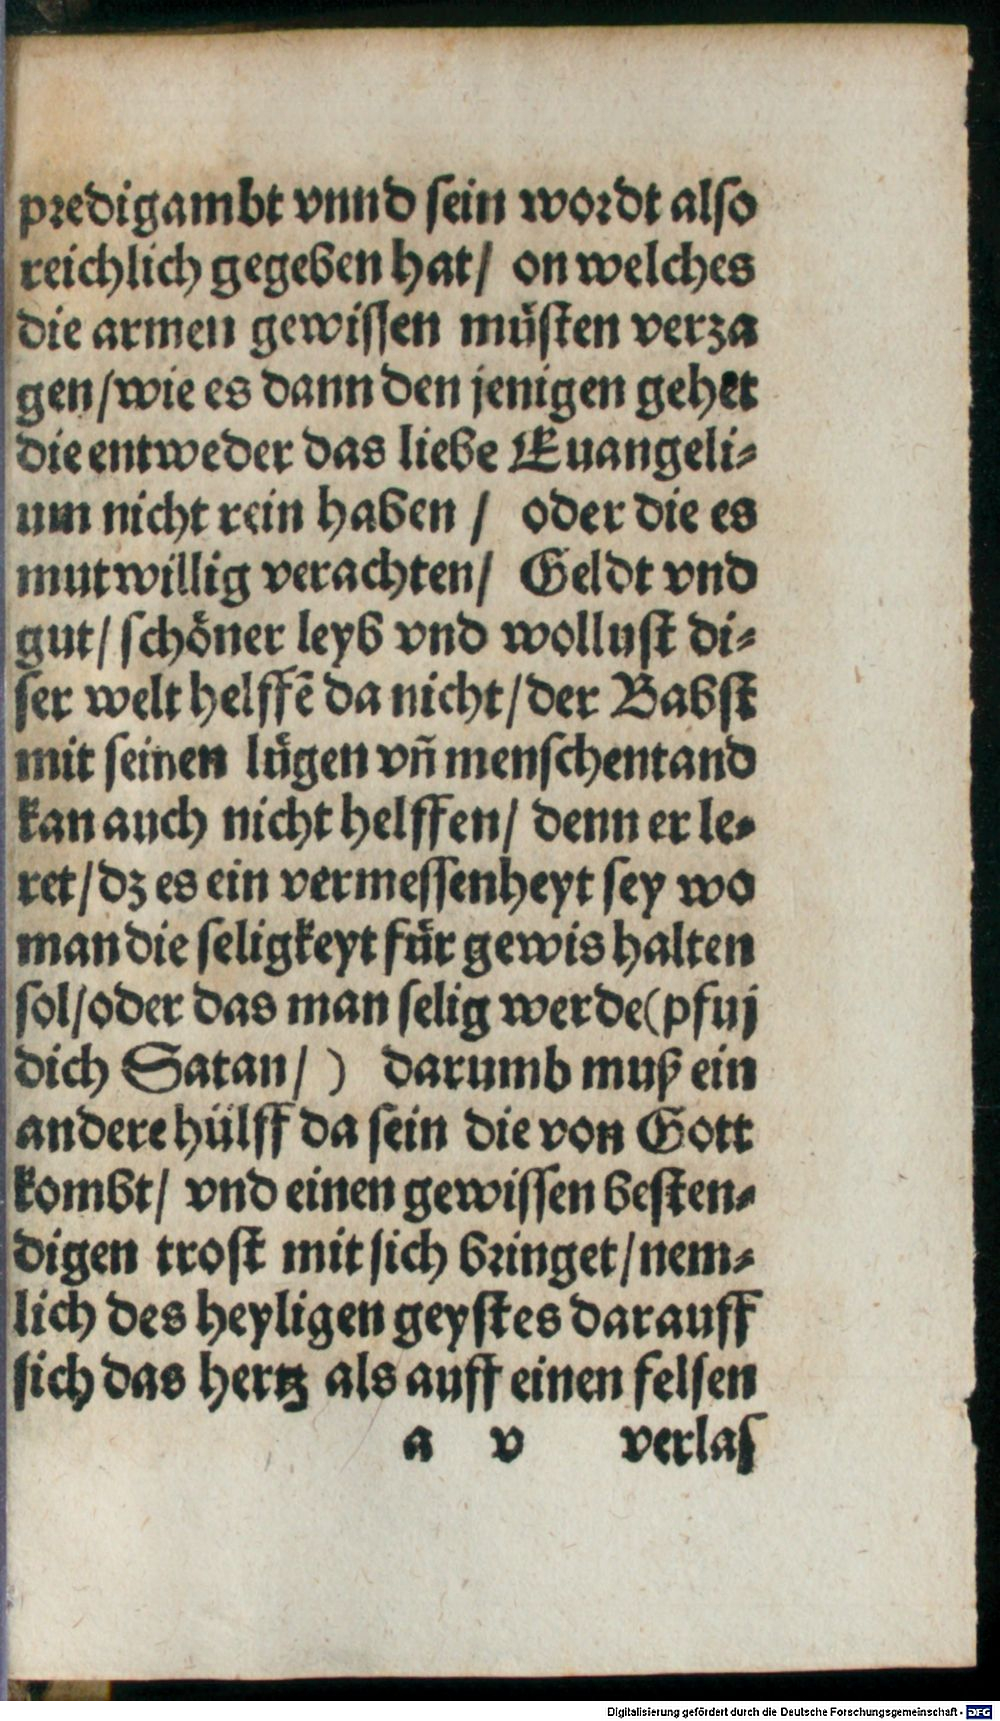 predigambt vnnd sein wordt also
reichlich gegeben hat/ on welches
die armen gewissen müsten verza
gen/wie es dann den jenigen gehet
die entweder das liebe Euangeli⸗
um nicht rein haben / oder die es
mutwillig verachten/ Geldt vnd
gut/ schöner leyb vnd wollust di⸗
ser welt helffē da nicht/der Babst
mit seinen lügen vñ menschentand
kan auch nicht helffen/ denn er le⸗
ret/dz es ein vermessenheyt sey wo
man die seligkeyt für gewis halten
sol/oder das man selig werde(pfuj
dich Satan/) darumb muß ein
andere hülff da sein die von Gott
kombt/ vnd einen gewissen besten⸗
digen trost mit sich bringet/nem⸗
lich des heyligen geystes darauff
sich das hertz als auff einen felsen
a v verlas
Digitalisierung gefördert durch die Deutsche Forschungsgemeinschaft - DFG